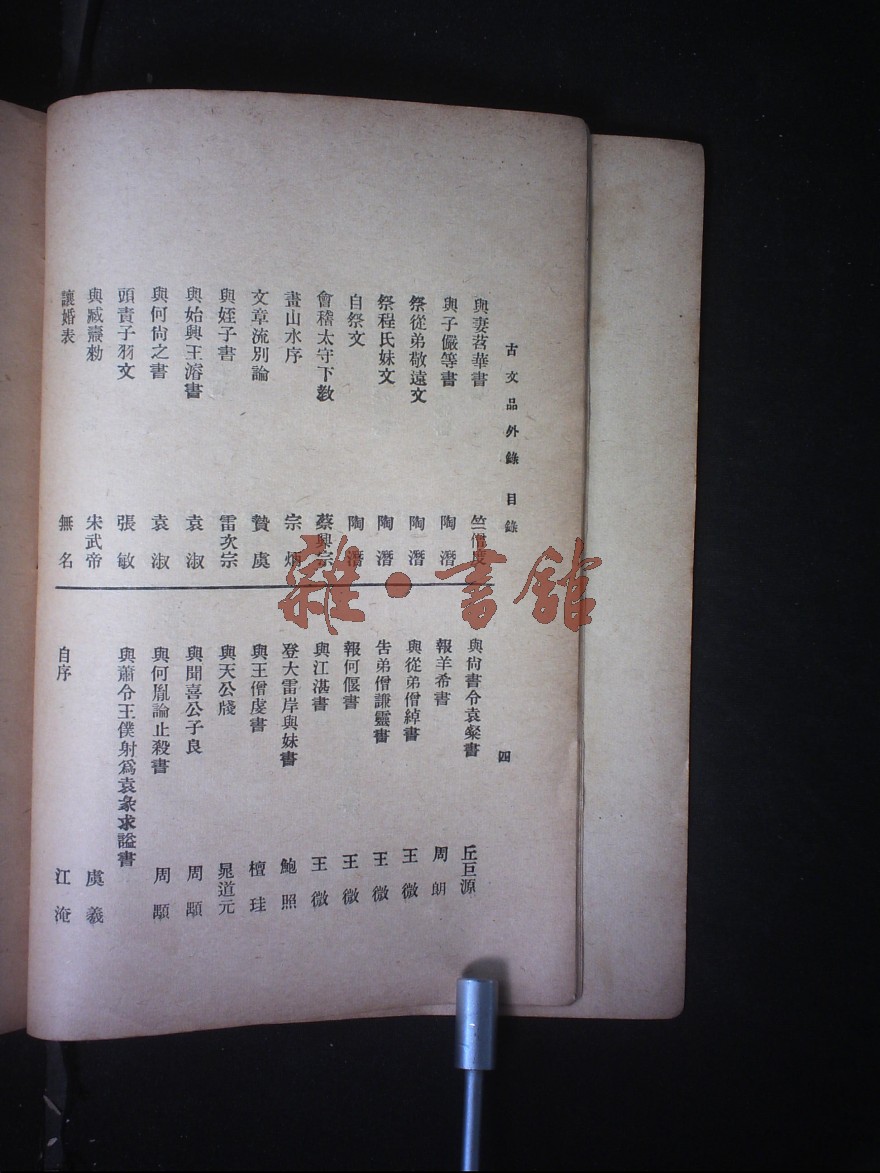 古文品外錄 目錄
四
與妻苕華書 竺僧度
與子儼等書 陶潛
祭從弟敬遠文 陶潛
祭程氏妹文 陶潛
自祭文 陶潛
會稽太守下教 蔡興宗
畫山水序 宗炳
文章流別論 贄虞
與姪子書 雷次宗
與始興王濬書 袁淑
與何尙之書 袁淑
頭責子羽文 張敏
與臧燾勑 宋武帝
讓婚表 無名
與尙書令袁粲書 丘巨源
報羊希書 周朗
與從弟僧綽書 王微
告弟僧謙靈書 王微
報何偃書 王微
與江湛書 王微
登大雷岸與妹書 鮑照
與王僧虔書 檀珪
與天公牋 晁道元
與聞喜公子良 周顒
與何胤論止殺書 周顒
與蕭令王僕射爲袁彖求謚書
虞羲
自序 江淹
雜·書館